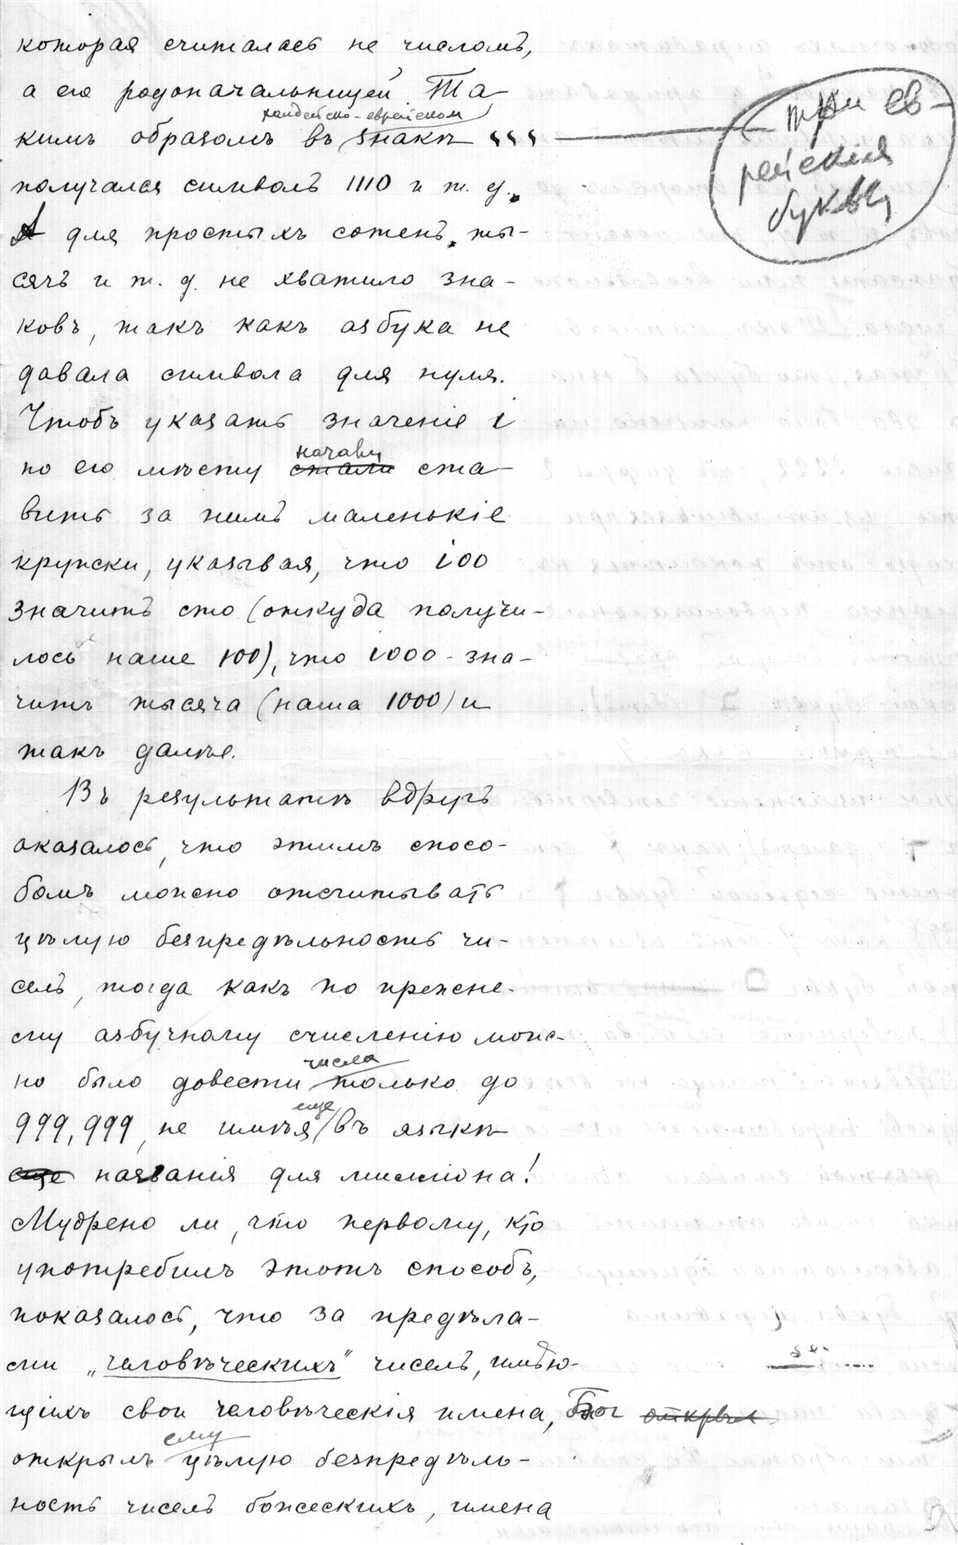 которая считалась не числомъ,
а его родоначальницей Та-
халдейско-еврейскомъ
кимъ образомъ въ знакѣ י י י
три ев-
рейскія
буквы
получался символъ 1110 и т. д.
А для простыхъ сотенъ, ты-
сячъ и т. д. не хватило зна-
ковъ, такъ какъ азбука не
давала символа для нуля.
Чтобъ указать значеніе i
начали
по его мѣсту стали ста-
вить за нимъ маленькіе
кружки, указывая, что i00
значитъ сто (откуда получи-
лось наше 100), что i000 - зна-
читъ тысяча (наша 1000) и
такъ далѣе.
Въ результатѣ вдругъ
оказалось, что этимъ спосо-
бомъ можно отсчитывать
цѣлую безпредѣльность чи-
селъ, тогда какъ по прежне-
му азбучному счисленію мож-
числа
но было довести только до
еще
999,999, не имѣя въ языкѣ
еще названія для милліона!
Мудрено ли, что первому, кто
употребилъ этотъ способъ,
показалось, что за предѣла-
ми „человѣческихъ" чиселъ, имѣю-
щихъ свои человѣческія имена, Бог открылъ
ему
открылъ цѣлую безпредѣль-
ность чиселъ божескихъ, имена